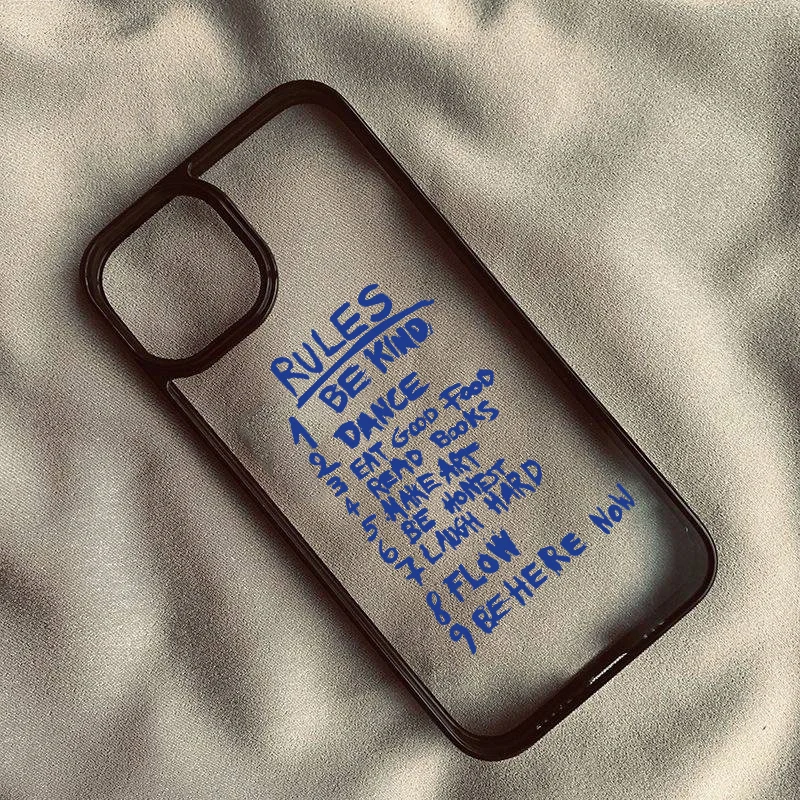 RULES
1 BE KIND.
2 DANCE
3 EAT GOOD FOOD
4 READ BOOKS
5 MAKE ART
6 BE HONEST
7 LAUGH HARD
8 FLOW
9 BE HERE NOW